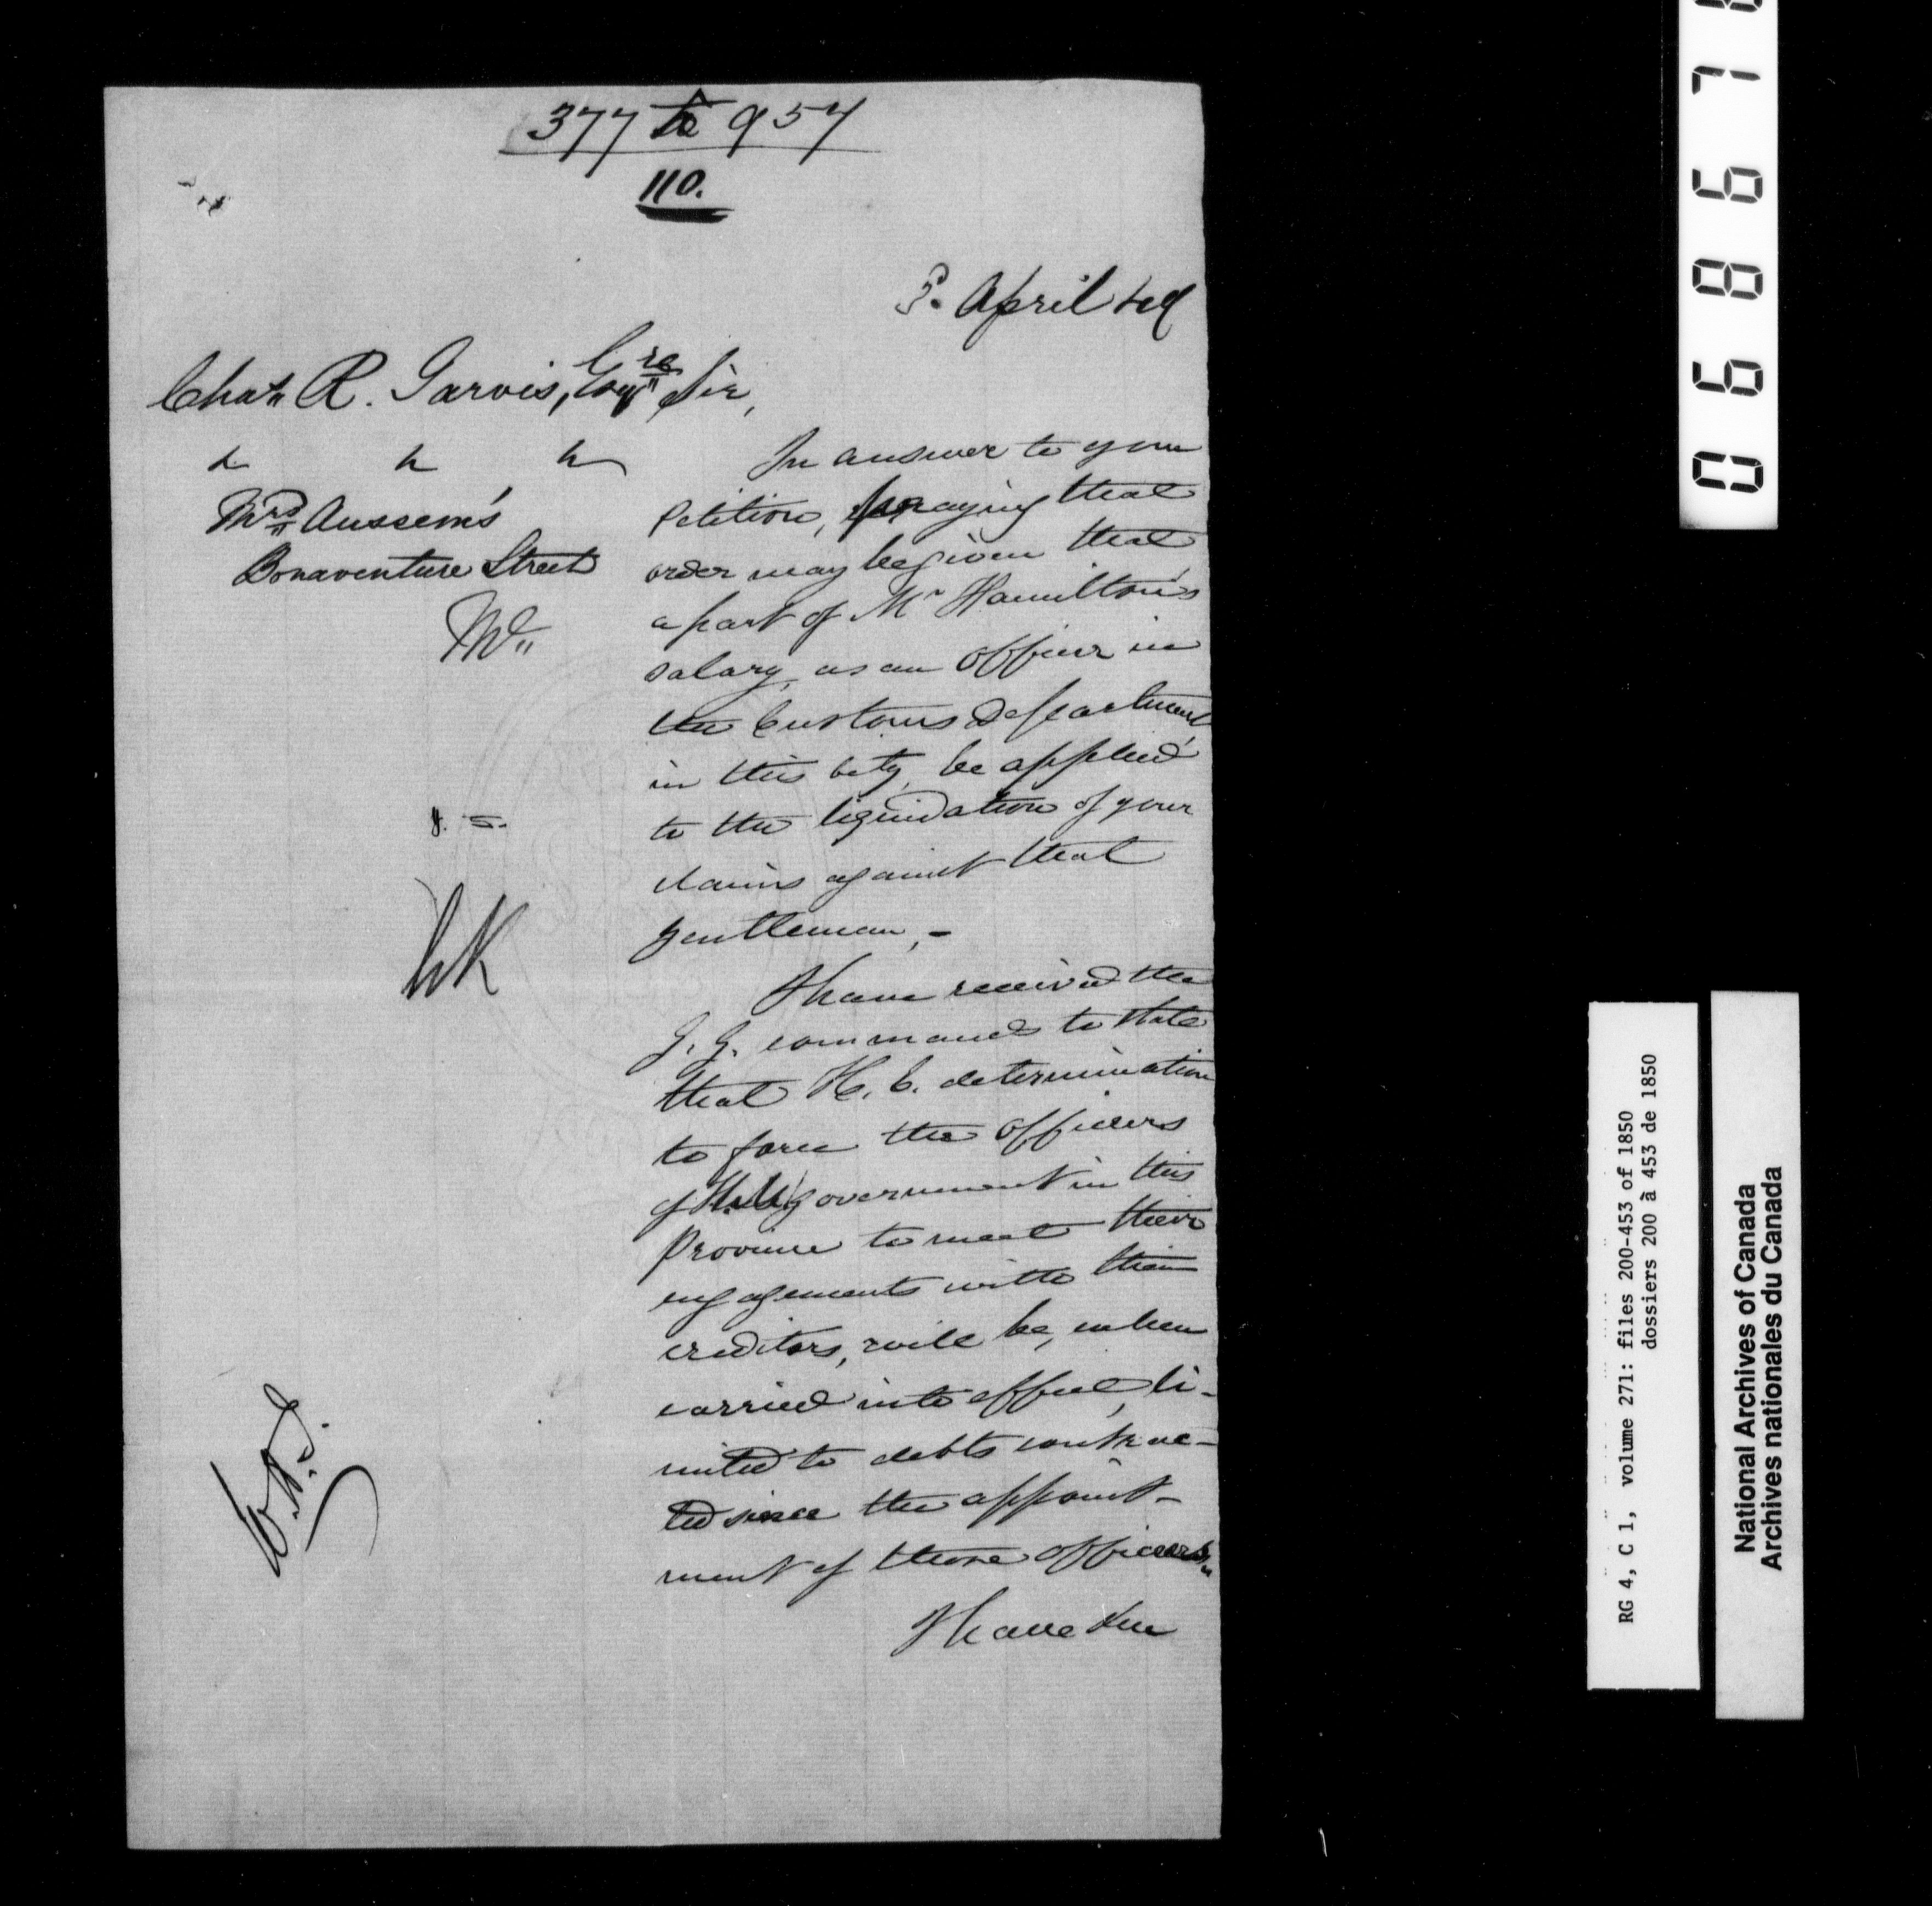 377 to 957
110.
5. April 49
Chas R. Jarvis, Esqre Sir,
In answer to your
Mrs Aussem's
Bonaventure Street
Ml
petition, praying that
order may be given that
a part of Mr Hamilton's
salary, as an Officer in
the Customs Department,
in this City, be applied
to the liquidation of your
claims against that
gentleman, -
I have received the
G. G. commands to state
that H. E. determination
to force the officers
of H. M. government in this
Province to meet their
engagements with their
creditors, will be, when
carried into effect, li-
mited to debts contrac-
ted since the appoint-
ment of those officers.
I have &ce
06867
RG 4, C 1, volume 271: files 200-453 of 1850
dossiers 200 à 453 de 1850
National Archives of Canada
Archives nationales du Canada